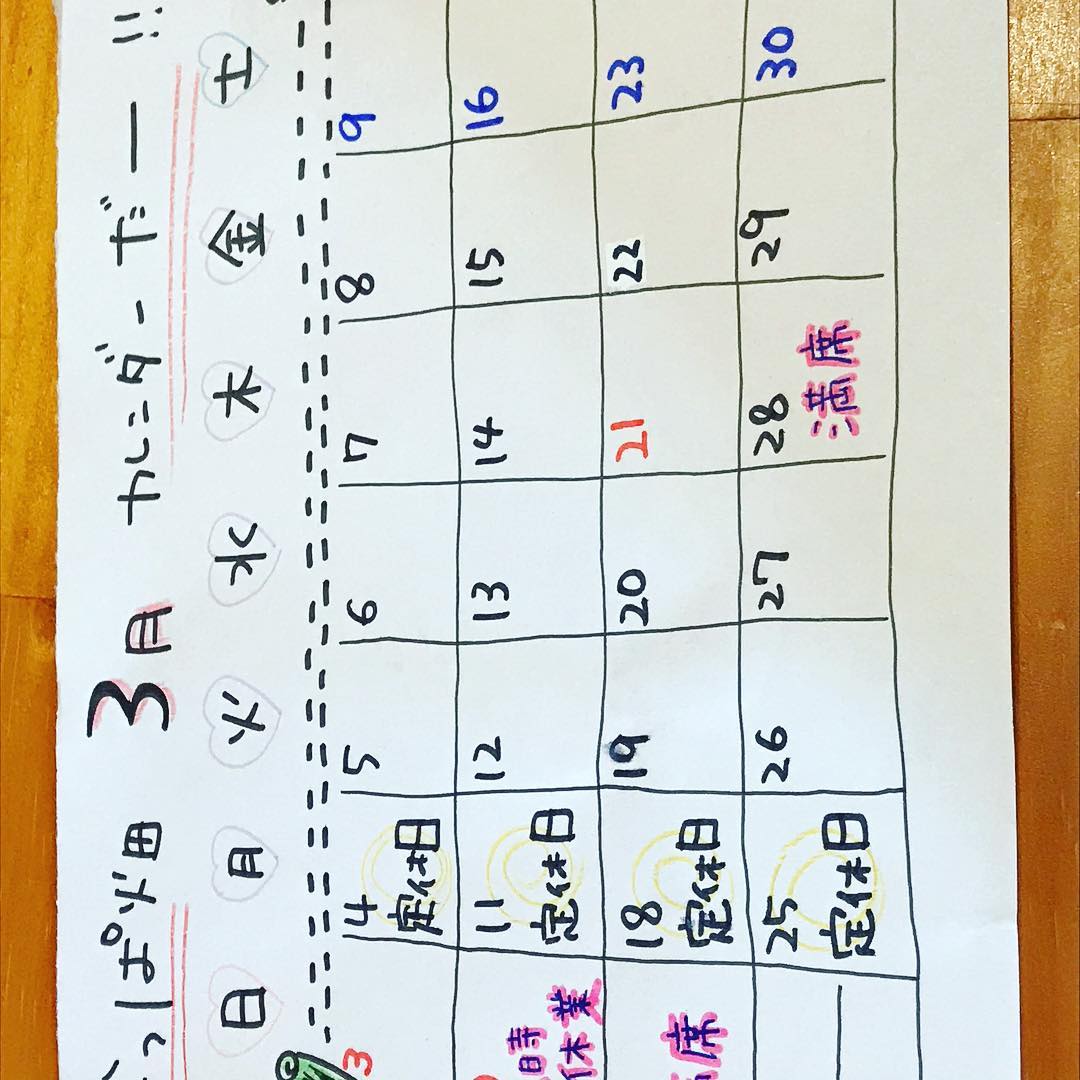 っぱ火田 3月 カレンダーデー!!
日 月 火 水 木 金 土
3 4 5 6 7 8 9
定休日
11 12 13 14 15 16
時 定休日
休業
18 19 20 21 22 23
席 定休日
25 26 27 28 29 30
定休日 満席